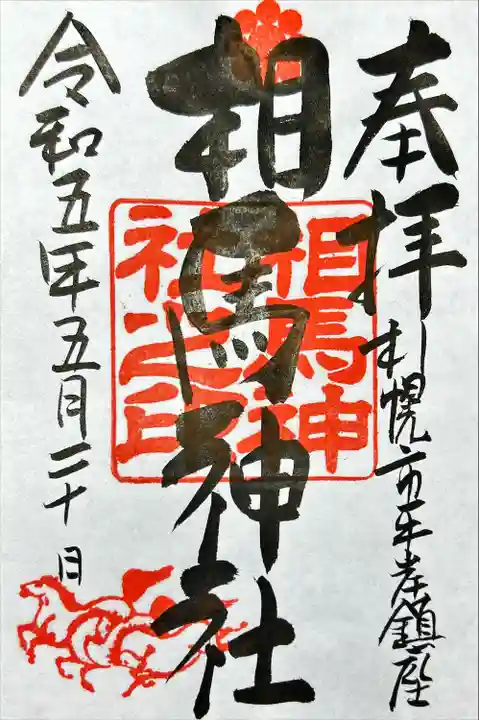 奉拝
札幌市平岸鎮座
相馬神社
相馬神
社之印
令和五年五月二十日